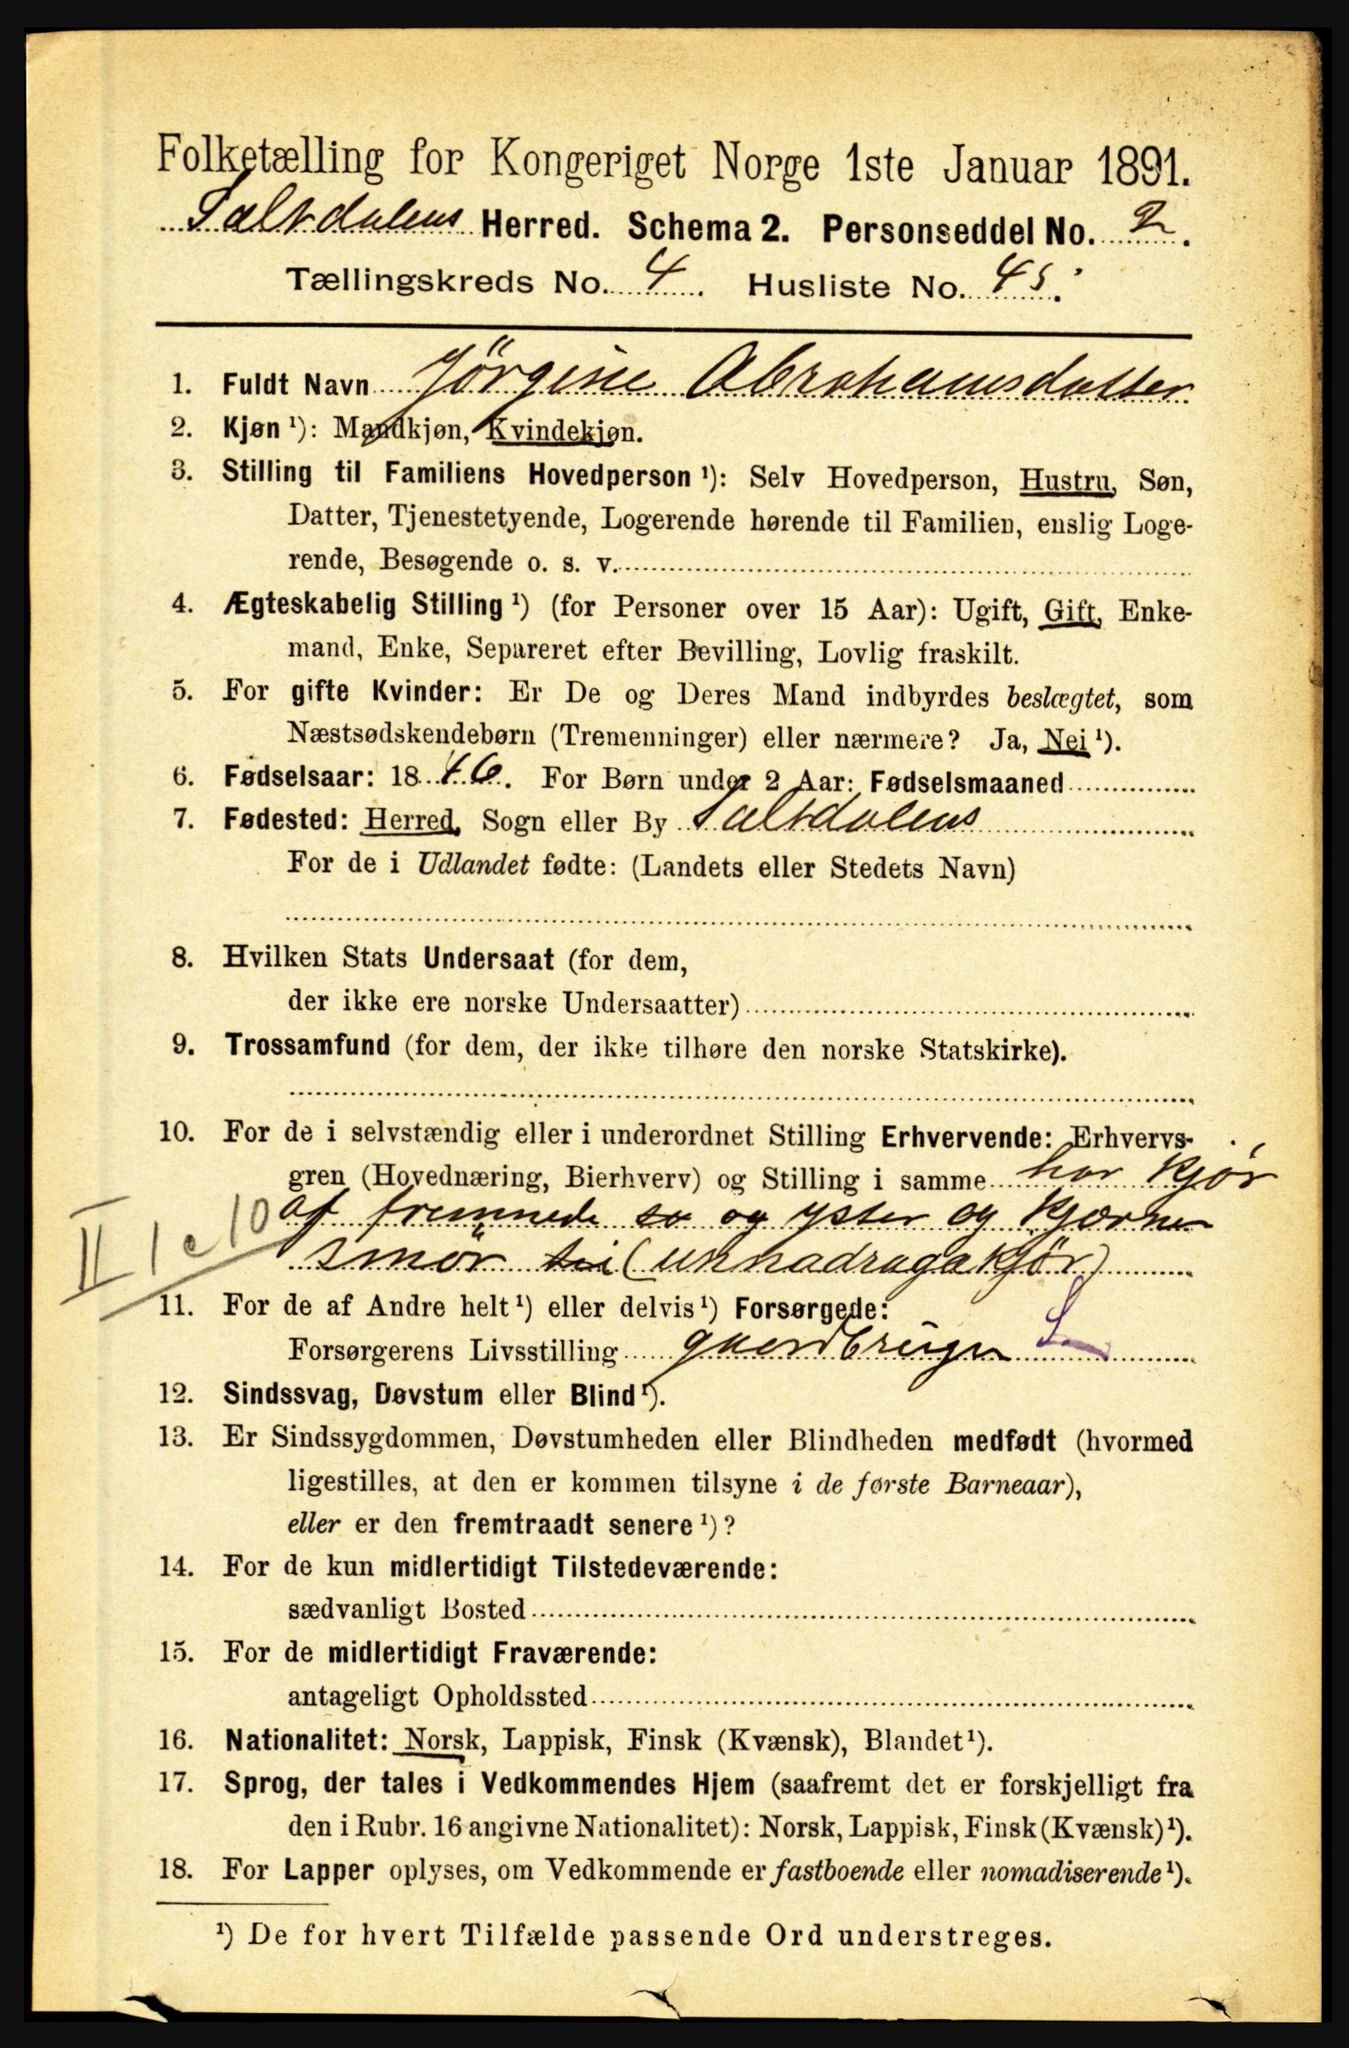 Folketælling for Kongeriget Norge 1ste Januar 1891.
Saltdalens Herred. Schema 2. Personseddel No. 2.
Tællingskreds No. 4. Husliste No. 45.
1. Fuldt Navn Jörgine Abrahamsdatter
2. Kjøn ¹): Mandkjøn, Kvindekjøn.
3. Stilling til Familiens Hovedperson ¹): Selv Hovedperson, Hustru, Søn,
Datter, Tjenestetyende, Logerende hørende til Familien, enslig Loge-
rende, Besøgende o. s. v.
4. Ægteskabelig Stilling ¹) (for Personer over 15 Aar): Ugift, Gift, Enke-
mand, Enke, Separeret efter Bevilling, Lovlig fraskilt.
5. For gifte Kvinder: Er De og Deres Mand indbyrdes beslægtet, som
Næstsødskendebørn (Tremenninger) eller nærmere? Ja, Nei ¹).
6. Fødselsaar: 1846. For Børn under 2 Aar: Fødselsmaaned
7. Fødested: Herred, Sogn eller By Saltdalens
For de i Udlandet fødte: (Landets eller Stedets Navn)
8. Hvilken Stats Undersaat (for dem,
der ikke ere norske Undersaatter)
9. Trossamfund (for dem, der ikke tilhøre den norske Statskirke).
10. For de i selvstændig eller i underordnet Stilling Erhvervende: Erhvervs-
gren (Hovednæring, Bierhverv) og Stilling i samme har Kjör
II 1 e 10 af fremmede so og yster og Kjærner
smör til (unnadragakjör)
11. For de af Andre helt ¹) eller delvis ¹) Forsørgede:
Forsørgerens Livsstilling gaardbruger S
12. Sindssvag, Døvstum eller Blind ¹).
13. Er Sindssygdommen, Døvstumheden eller Blindheden medfødt (hvormed
ligestilles, at den er kommen tilsyne i de første Barneaar),
eller er den fremtraadt senere ¹)?
14. For de kun midlertidigt Tilstedeværende:
sædvanligt Bosted
15. For de midlertidigt Fraværende:
antageligt Opholdssted
16. Nationalitet: Norsk, Lappisk, Finsk (Kvænsk), Blandet ¹).
17. Sprog, der tales i Vedkommendes Hjem (saafremt det er forskjelligt fra
den i Rubr. 16 angivne Nationalitet): Norsk, Lappisk, Finsk (Kvænsk) ¹).
18. For Lapper oplyses, om Vedkommende er fastboende eller nomadiserende ¹).
¹) De for hvert Tilfælde passende Ord understreges.